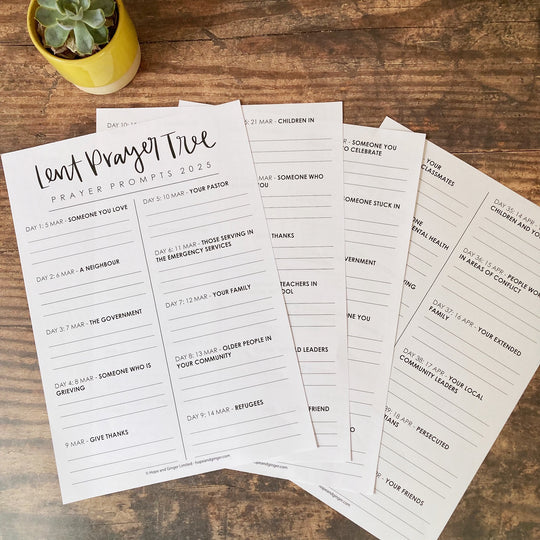 Lent Prayer Tree
PRAYER PROMPTS 2025
DAY 1: 5 MAR - SOMEONE YOU LOVE
DAY 2: 6 MAR - A NEIGHBOUR
DAY 3: 7 MAR - THE GOVERNMENT
DAY 4: 8 MAR - SOMEONE WHO IS
GRIEVING
9 MAR - GIVE THANKS
DAY 5: 10 MAR - YOUR PASTOR
DAY 6: 11 MAR - THOSE SERVING IN
THE EMERGENCY SERVICES
DAY 7: 12 MAR - YOUR FAMILY
DAY 8: 13 MAR - OLDER PEOPLE IN
YOUR COMMUNITY
DAY 9: 14 MAR - REFUGEES
© Hope and Ginger Limited - hopeandginger.com
DAY 10:
5: 21 MAR - CHILDREN IN
MAR - SOMEONE WHO
THANKS
TEACHERS IN
OOL
LEADERS
FRIEND
hopeandginger.com
SOMEONE YOU
TO CELEBRATE
SOMEONE STUCK IN
GOVERNMENT
ONE YOU
YOUR
CLASSMATES
ONE
MENTAL HEALTH
DAY 35: 14 APR -
CHILDREN AND YOU
DAY 36: 15 APR - PEOPLE WOR
IN AREAS OF CONFLICT
DAY 37: 16 APR - YOUR EXTENDED
FAMILY
DAY 38: 17 APR - YOUR LOCAL
COMMUNITY LEADERS
39: 18 APR - PERSECUTED
TIANS
APR - YOUR FRIENDS
© Hope and Ginger Limited